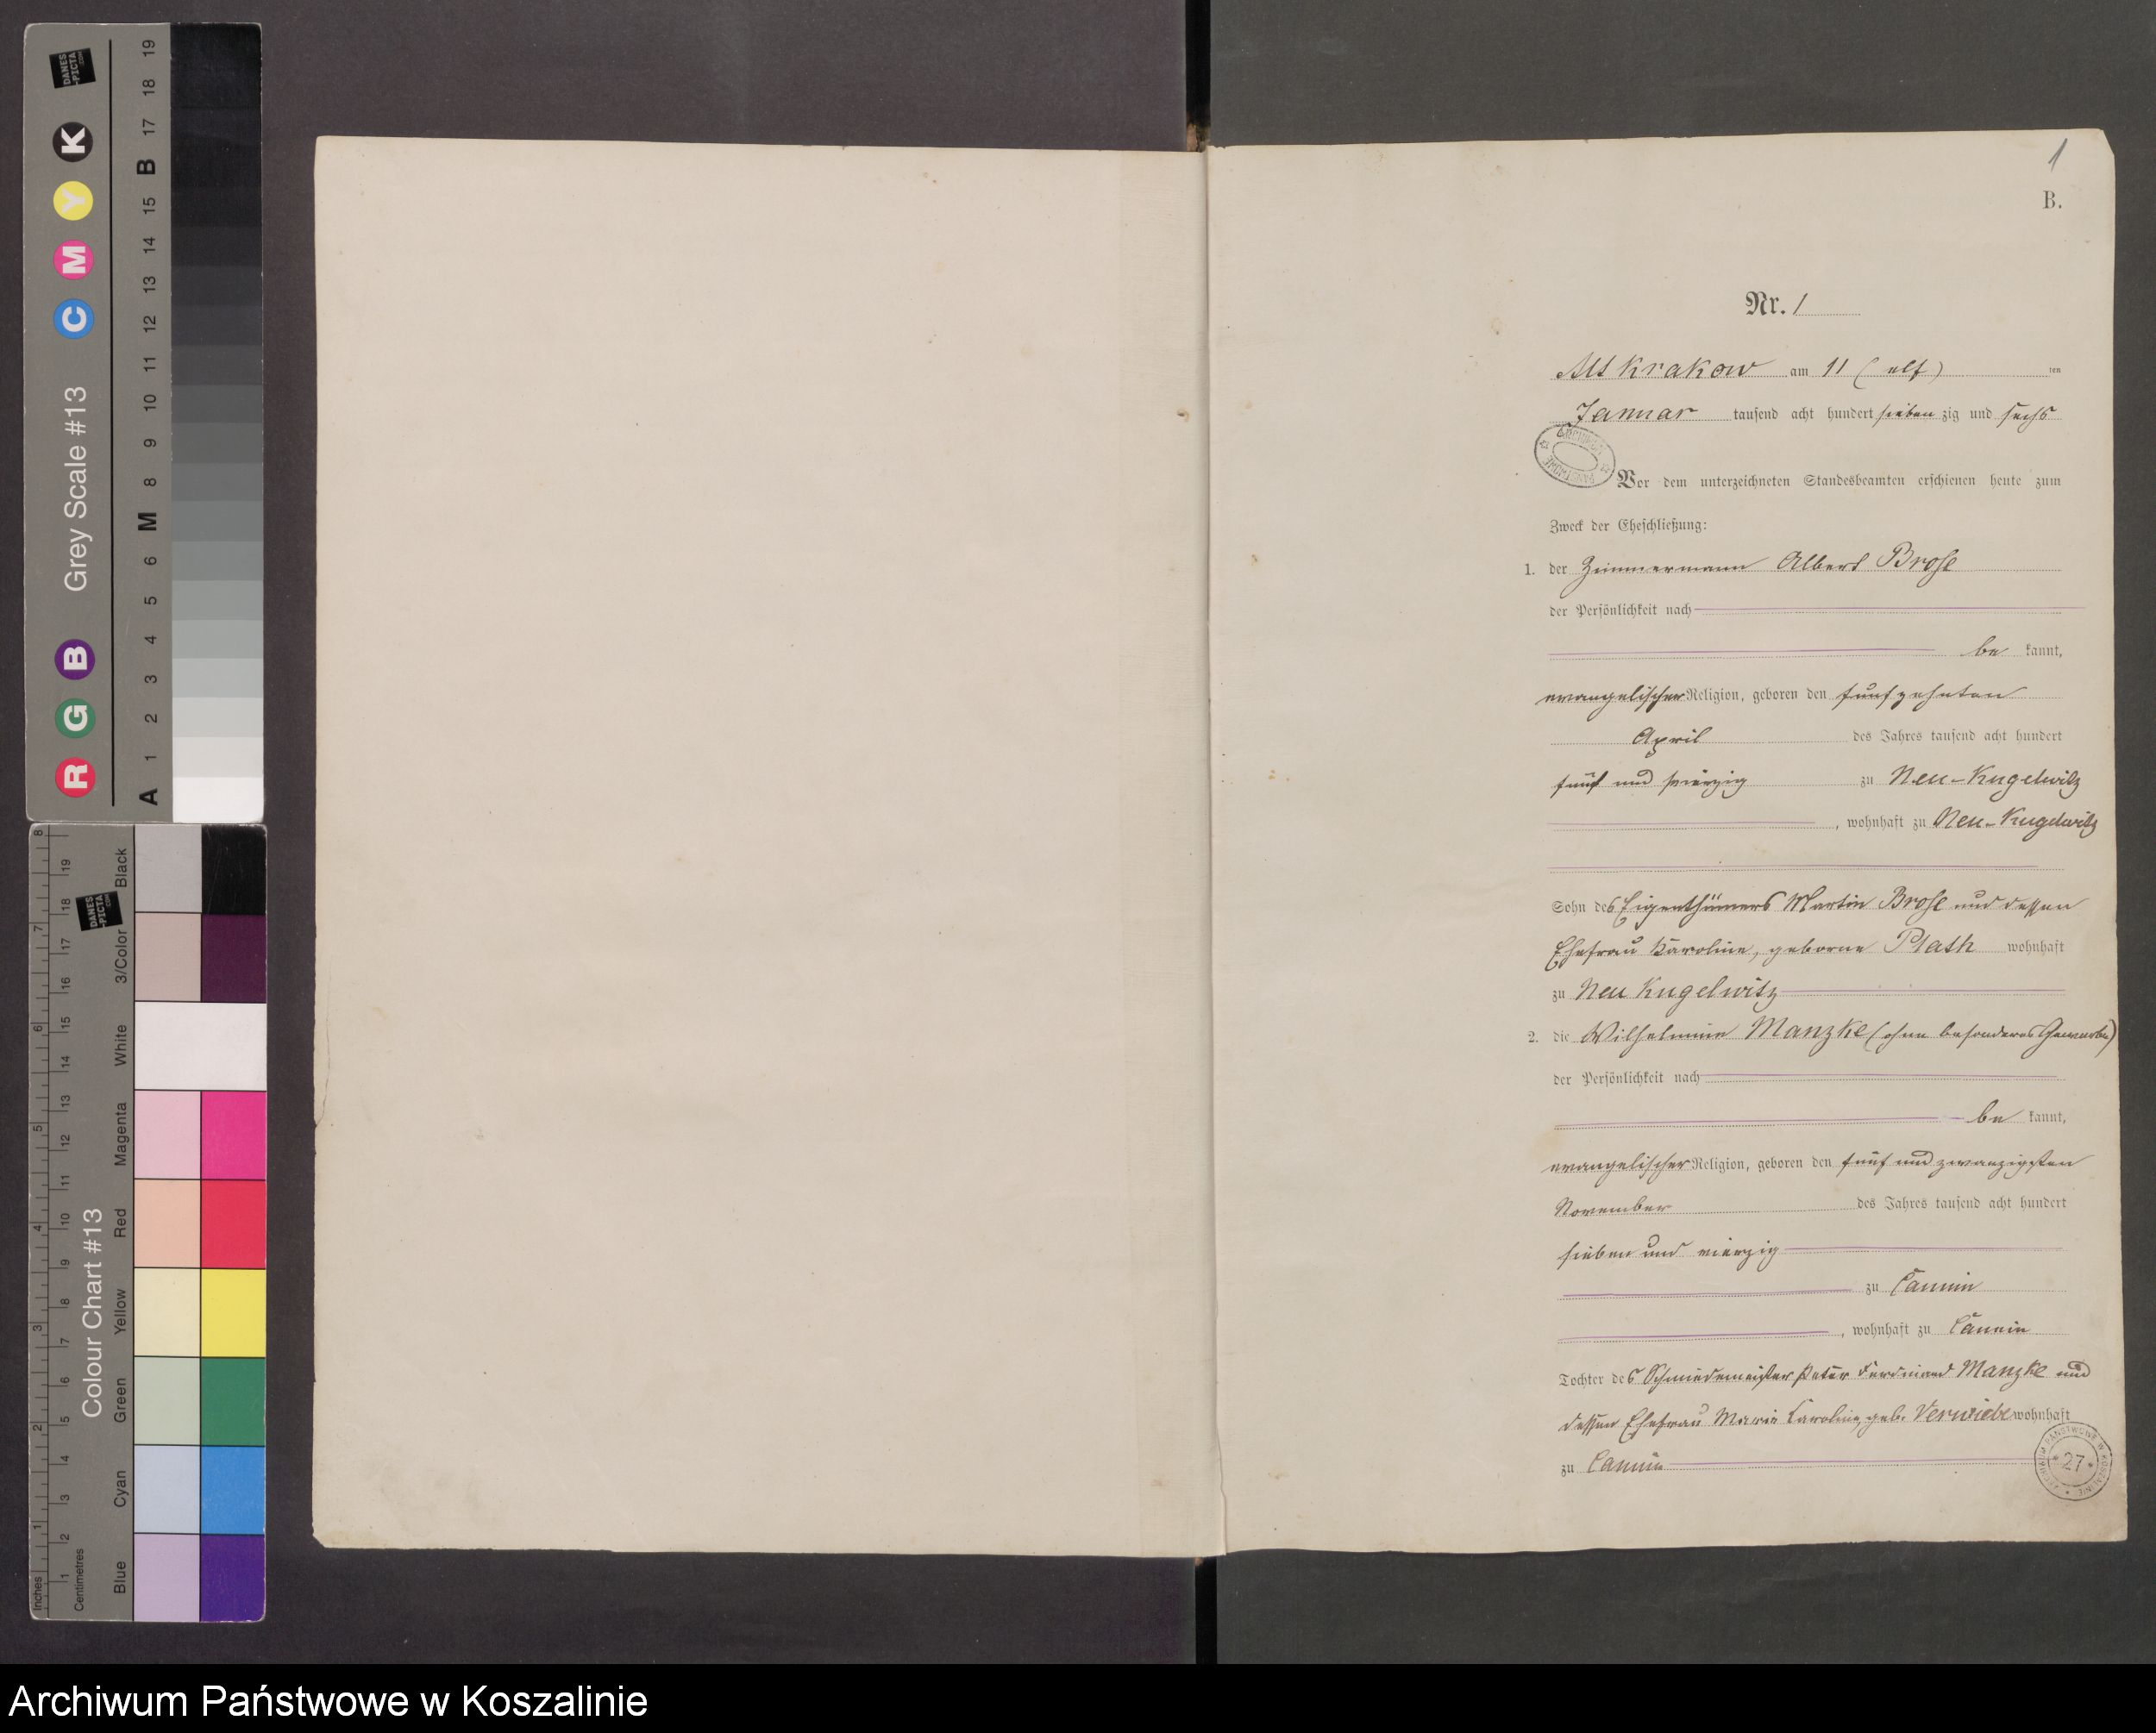 1
B.
Nr. 1
Alt Krakow am 11 (elf) ten
Januar tausend acht hundert sieben zig und sechs
Vor dem unterzeichneten Standesbeamten erschienen heute zum
Zweck der Eheschließung:
1. der Zimmermann Albert Brose
der Persönlichkeit nach
be kannt,
evangelischer Religion, geboren den fünfzehnten
April des Jahres tausend acht hundert
fünf und vierzig zu Neu-Kugelwitz
, wohnhaft zu Neu-Kugelwitz
Sohn des Eigenthümers Martin Brose und dessen
Ehefrau Karoline, geborne Plath wohnhaft
zu Neu Kugelwitz
2. die Wilhelmine Manzke (ohne besonderes Gewerbe)
der Persönlichkeit nach
be kannt,
evangelischer Religion, geboren den fünf und zwanzigsten
November des Jahres tausend acht hundert
sieben und vierzig
zu Cannin
, wohnhaft zu Cannin
Tochter des Schmiedemeister Peter Ferdinand Manzke und
dessen Ehefrau Marie Caroline, geb. Verwiebe wohnhaft
zu Cannin
ARCHIWUM PAŃSTWOWE W KOSZALINIE
27
DANES
-PICTA
.COM
Grey Scale #13
R G B C M Y K
A 1 2 3 4 5 6 M 8 9 10 11 12 13 14 15 B 17 18 19
DANES
-PICTA
.COM
Colour Chart #13
Blue Cyan Green Yellow Red Magenta White 3/Color Black
Inches 1 2 3 4 5 6 7 8
Centimetres 1 2 3 4 5 6 7 8 9 10 11 12 13 14 15 16 17 18 19
Archiwum Państwowe w Koszalinie